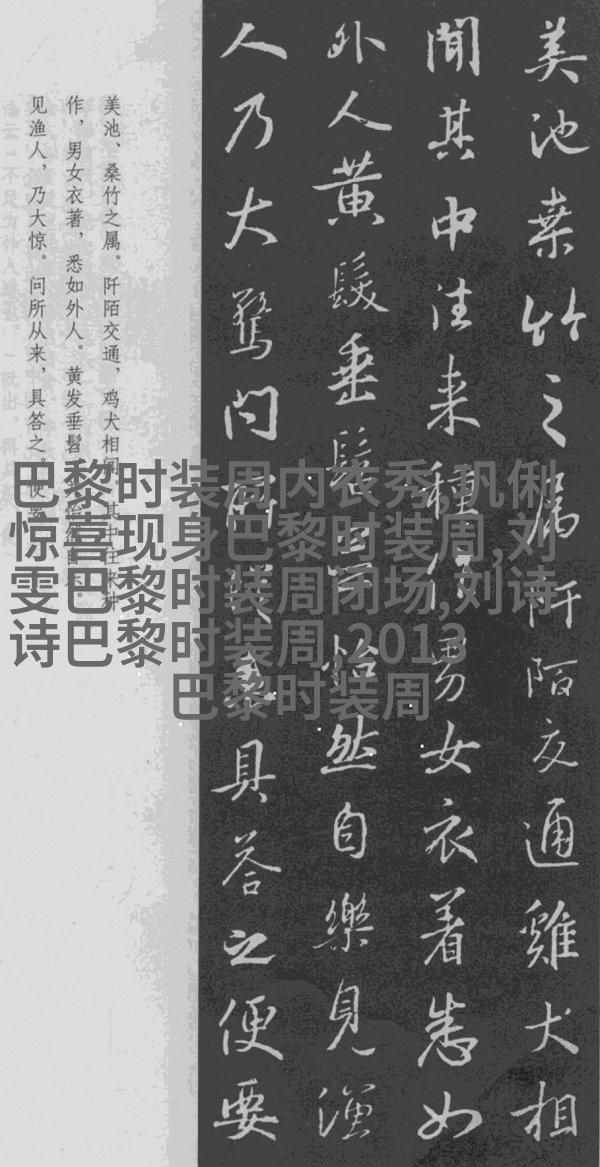 美池桒竹之属阡陌交通雞犬相
聞其中往来種作男女衣着悉如
外人黄髮垂髫並怡然自樂見漁
人乃大驚問所從来具答之便要
美池、桑竹之属。阡陌交通，鸡犬相闻。其中往来种
作，男女衣著，悉如外人。黄发垂髫，并怡然自乐。
见渔人，乃大惊。问所从来，具答之。便要
巴黎时装周内衣秀,巩俐
惊喜现身巴黎时装周,刘
雯巴黎时装周闭场,刘诗
诗巴黎时装周,2013
巴黎时装周